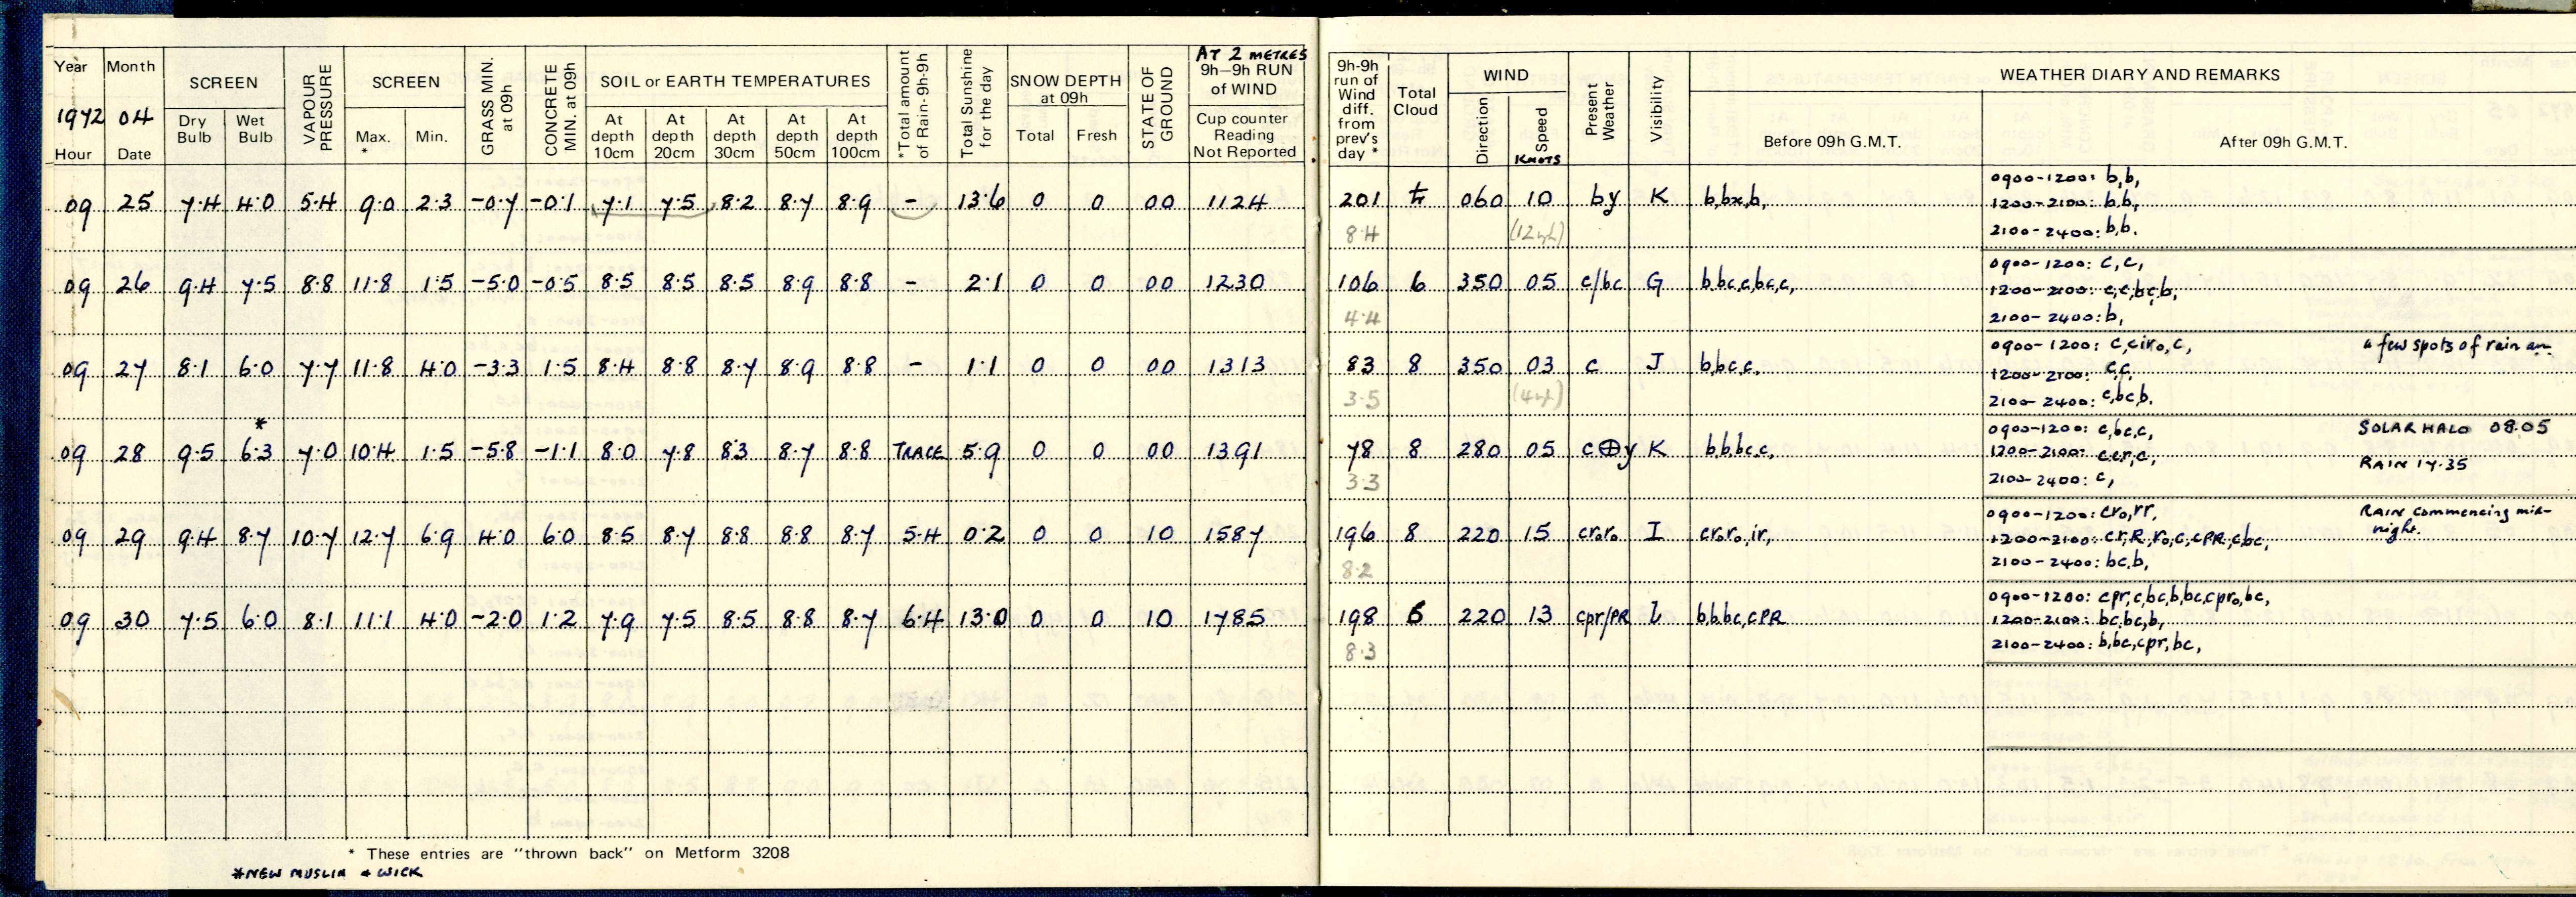 Year Month SCREEN VAPOUR PRESSURE SCREEN GRASS MIN. at 09h CONCRETE MIN. at 09h SOIL or EARTH TEMPERATURES *Total amount of Rain-9h-9h Total Sunshine for the day SNOW DEPTH at 09h STATE OF GROUND AT 2 METRES 9h–9h RUN of WIND
1972 04 Dry Bulb Wet Bulb Max. * Min. At depth 10cm At depth 20cm At depth 30cm At depth 50cm At depth 100cm Total Fresh Cup counter Reading Not Reported
Hour Date
09 25 7.4 4.0 5.4 9.0 2.3 -0.7 -0.1 7.1 7.5 8.2 8.7 8.9 - 13.6 0 0 00 1124
09 26 9.4 7.5 8.8 11.8 1.5 -5.0 -0.5 8.5 8.5 8.5 8.9 8.8 - 2.1 0 0 00 1230
09 27 8.1 6.0 7.7 11.8 4.0 -3.3 1.5 8.4 8.8 8.7 8.9 8.8 - 1.1 0 0 00 1313
*
09 28 9.5 6.3 7.0 10.4 1.5 -5.8 -1.1 8.0 7.8 8.3 8.7 8.8 TRACE 5.9 0 0 00 1391
09 29 9.4 8.7 10.7 12.7 6.9 4.0 6.0 8.5 8.7 8.8 8.8 8.7 5.4 0.2 0 0 10 1587
09 30 7.5 6.0 8.1 11.1 4.0 -2.0 1.2 7.9 7.5 8.5 8.8 8.7 6.4 13.0 0 0 10 1785
* These entries are "thrown back" on Metform 3208
*NEW MUSLIN & WICK
9h-9h run of Wind diff. from prev's day * Total Cloud WIND Direction Speed KNOTS Present Weather Visibility WEATHER DIARY AND REMARKS
Before 09h G.M.T. After 09h G.M.T.
0900-1200: b,b,
201 060 10 by K b,bx,b, 1200-2100: b,b,
8.4 2100-2400: b,b.
0900-1200: c,c,
106 6 350 05 c/bc G b,bc,c,bc,c, 1200-2100: c,c,bc,b,
4.4 2100-2400: b,
0900-1200: c,ciro,c, a few spots of rain am
83 8 350 03 c J b,bc,c, 1200-2100: c,c,
3.5 2100-2400: c,bc,b.
0900-1200: c,bc,c, SOLAR HALO 08.05
78 8 280 05 c⊕y K b,b,bc,c, 1200-2100: c,cr,c, RAIN 17.35
3.3 2100-2400: c,
0900-1200: cro,rr, RAIN commencing mid-
196 8 220 15 croro I croro,ir, 1200-2100: cr,R,ro,c,cPR,c,bc, night.
8.2 2100-2400: bc,b,
0900-1200: cpr,c,bc,b,bc,cpro,bc,
198 6 220 13 cpr/PR L b,b,bc,cPR 1200-2100: bc,bc,b,
8.3 2100-2400: b,bc,cpr,bc,